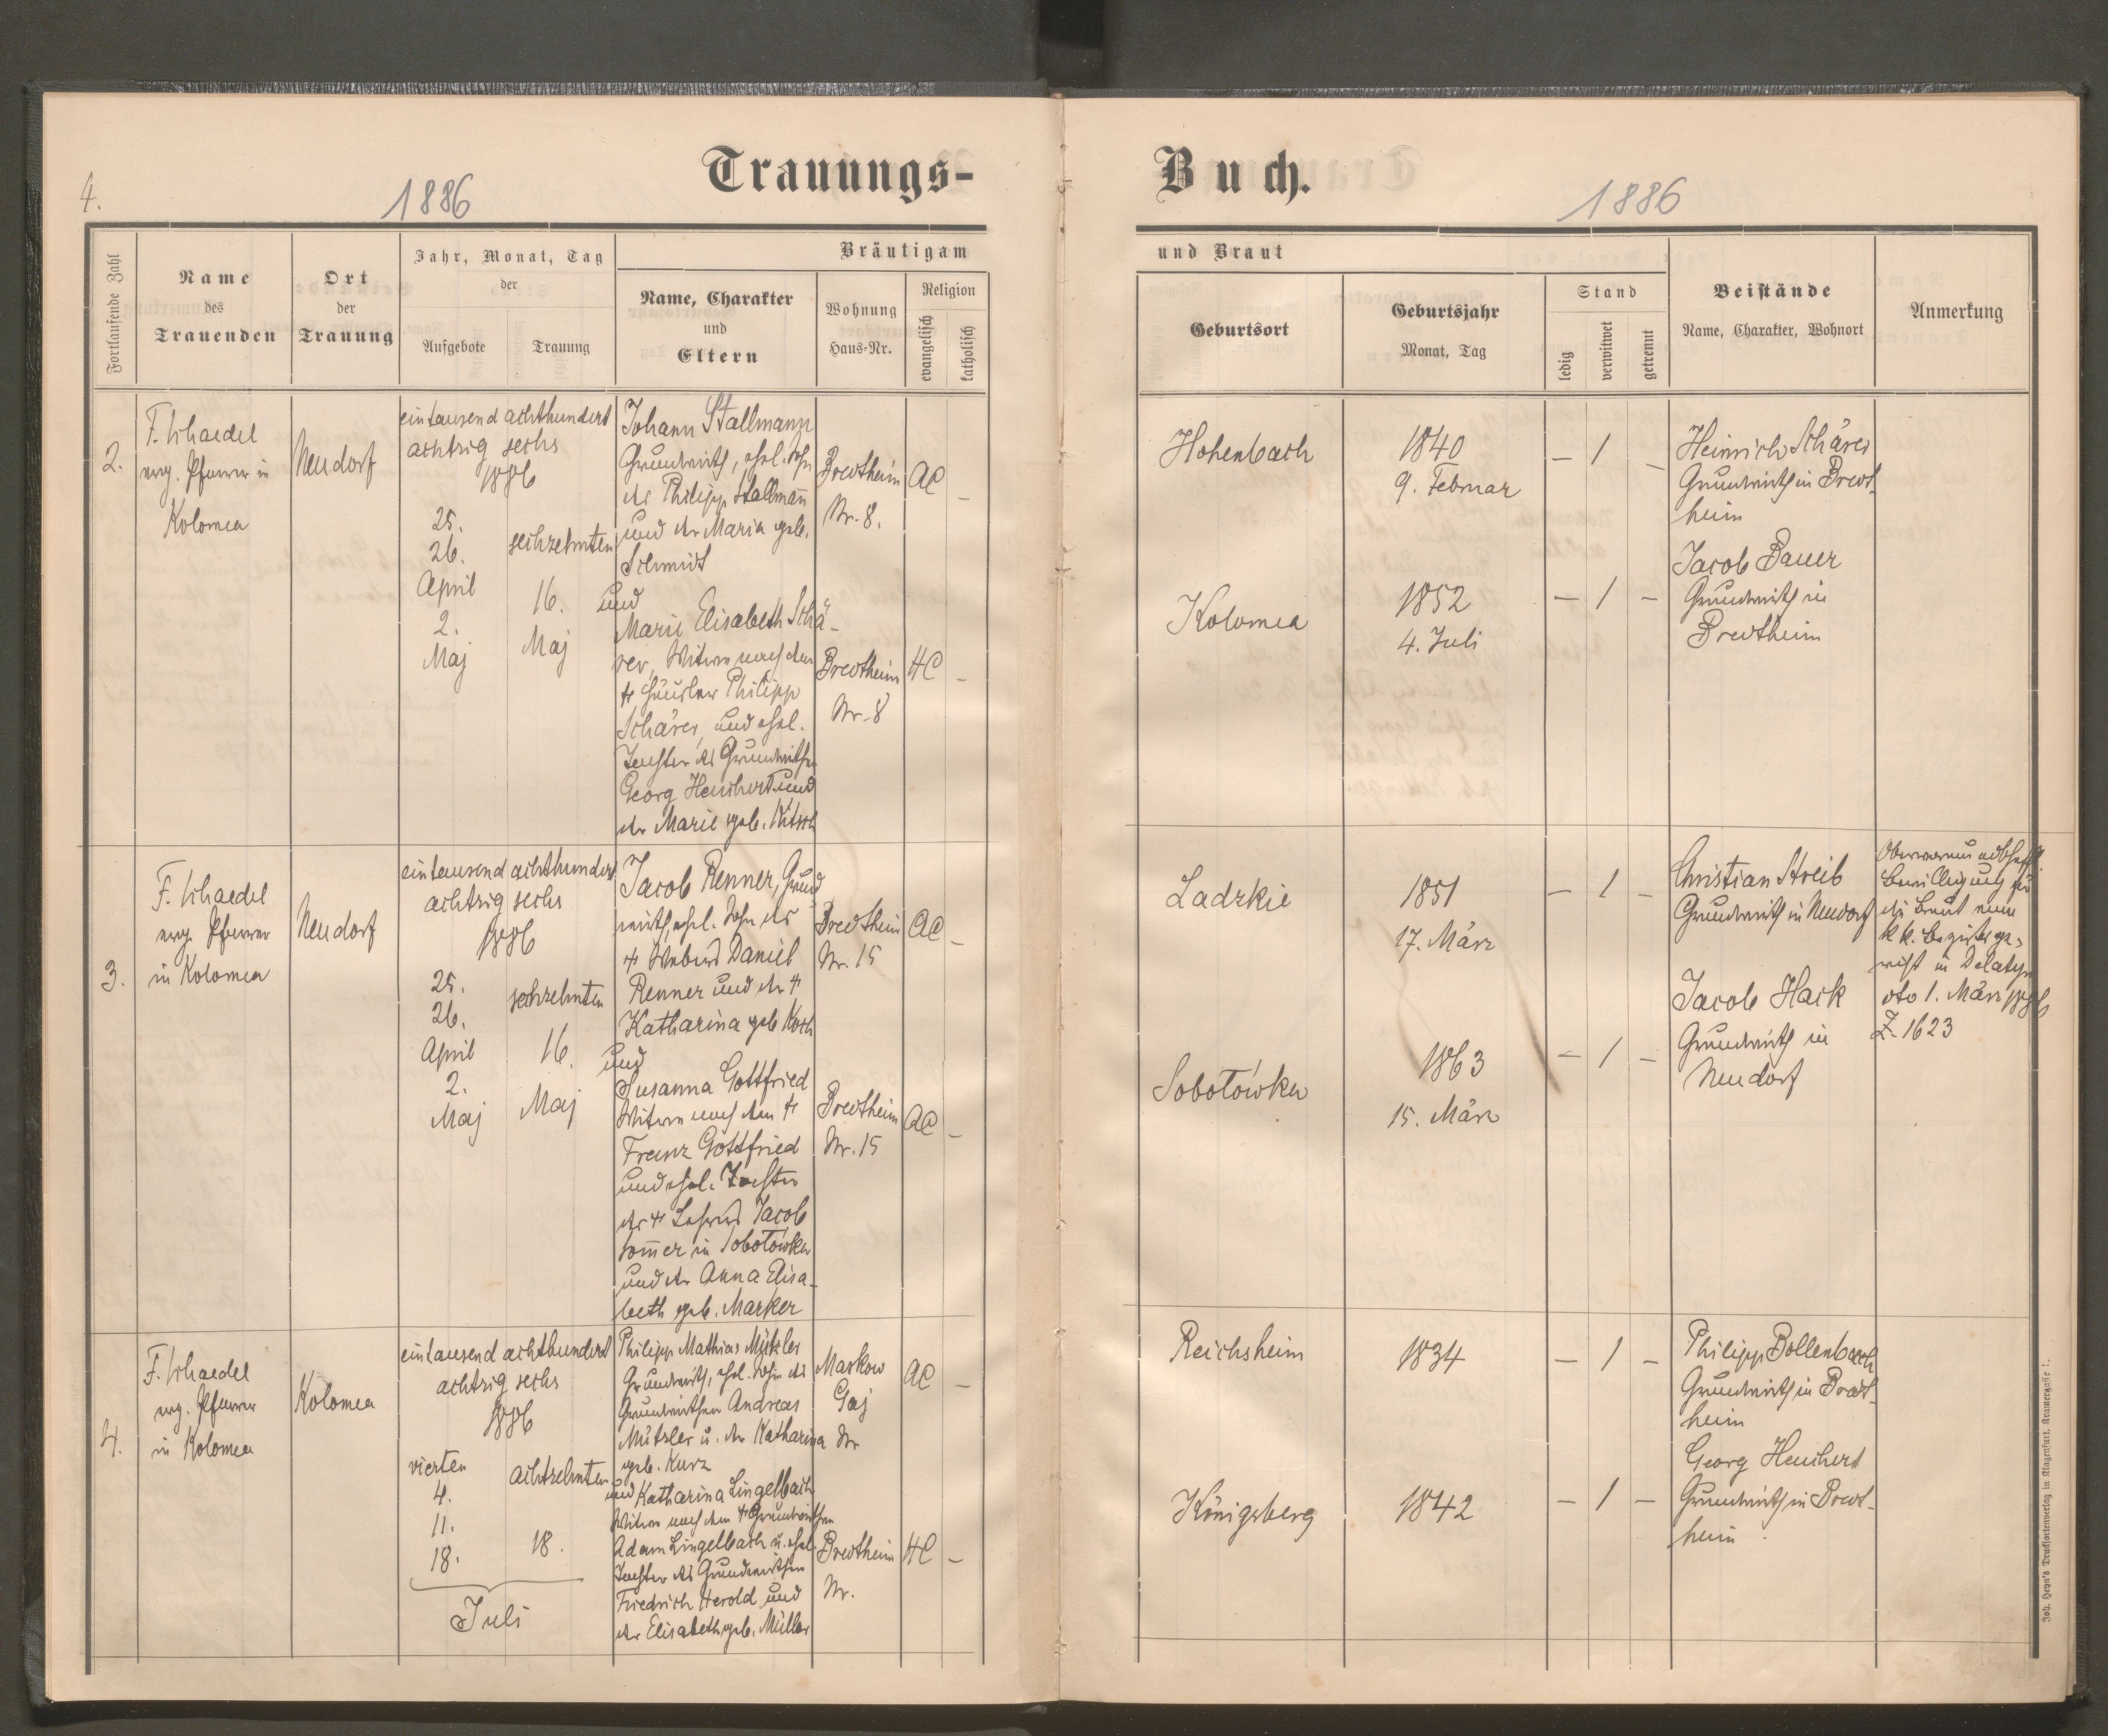 4.
1886
Trauungs-
Buch.
1886
Fortlaufende Zahl
Name
des
Trauenden
Ort
der
Trauung
Jahr, Monat, Tag
der
Aufgebote
Trauung
Bräutigam
Name, Charakter
und
Eltern
Wohnung
Haus-Nr.
Religion
evangelisch
katholisch
und Braut
Geburtsort
Geburtsjahr
Monat, Tag
Stand
ledig
verwitwet
getrennt
Beistände
Name, Charakter, Wohnort
Anmerkung
2.
F. Schaedel
evg. Pfarrer in
Kolomea
Neudorf
eintausend achthundert
achtzig sechs
1886
25.
26.
April
2.
Maj
sechzehnten
16.
Maj
Johann Stallmann
Grundwirth, ehel. Sohn
des Philipp Stallmañ
und der Maria geb.
Schmidt
und
Marie Elisabeth Schä-
rer, Witwe nach dem
† Häusler Philipp
Schärer, und ehel.
Tochter des Grundwirthen
Georg Heuchert und
der Marie geb. Kitsch
Bredtheim
Nr. 8.
AC
–
Bredtheim
Nr. 8
HC
–
Hohenbach
1840
9. Februar
– 1 –
Kolomea
1852
4. Juli
– 1 –
Heinrich Schärer
Grundwirth in Bredt-
heim
Jacob Bauer
Grundwirth in
Bredtheim
3.
F. Schaedel
evg. Pfarrer
in Kolomea
Neudorf
eintausend achthundert
achtzig sechs
1886
25.
26.
April
2.
Maj
sechzehnten
16.
Maj
Jacob Renner, Grund
wirth, ehel. Sohn des
† Webers Daniel
Renner und der †
Katharina geb Koch
und
Susanna Gottfried
Witwe nach dem †
Franz Gottfried
und ehel. Tochter
des † Lehrers Jacob
Som̄er in Sobotówka
und der Anna Elisa-
beth geb. Marker
Bredtheim
Nr. 15
AC
–
Bredtheim
Nr. 15
AC
–
Ladzkie
1851
17. März
– 1 –
Sobotówka
1863
15. März
– 1 –
Christian Streib
Grundwirth in Neudorf
Jacob Hack
Grundwirth in
Neudorf
Bewilligung für
die Braut vom
kk. Bezirksge-
richt in Delatyn
dto 1. März 1886
Z. 1623
4.
F. Schaedel
evg. Pfarrer
in Kolomea
Kolomea
eintausend achthundert
achtzig sechs
1886
vierten
4.
11.
18.
achtzehnten
18.
Juli
Philipp Mathias Mützler
Grundwirth, ehel. Sohn des
Grundwirthen Andreas
Mützler u. der Katharina
geb. Kurz
und Katharina Lingelbach
Witwe nach dem † Grundwirthen
Adam Lingelbach u. ehel.
Tochter des Grundwirthen
Friedrich Herold und
der Elisabeth geb. Müller
Maskow
Gaj
Nr
AC
–
Bredtheim
Nr.
HC
–
Reichsheim
1834
– 1 –
Königsberg
1842
– 1 –
Philipp Bollenbach
Grundwirth in Bredt-
heim
Georg Heuchert
Grundwirth in Bredt-
heim
Joh. Heyn's Drucksortenverlag in Klagenfurt, Kramergasse 1.